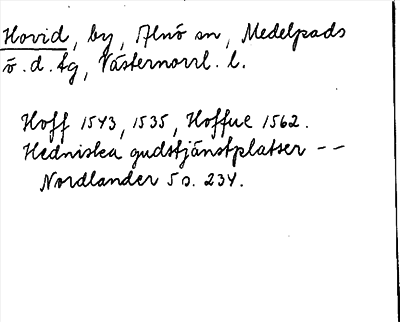 Hovid, by, Alnö sn, Medelpads
ö. d. tg, Västernorrl. l.
Hoff 1543, 1535, Hoffue 1562.
Hedniska gudstjänstplatser --
Nordlander 5 s. 234.